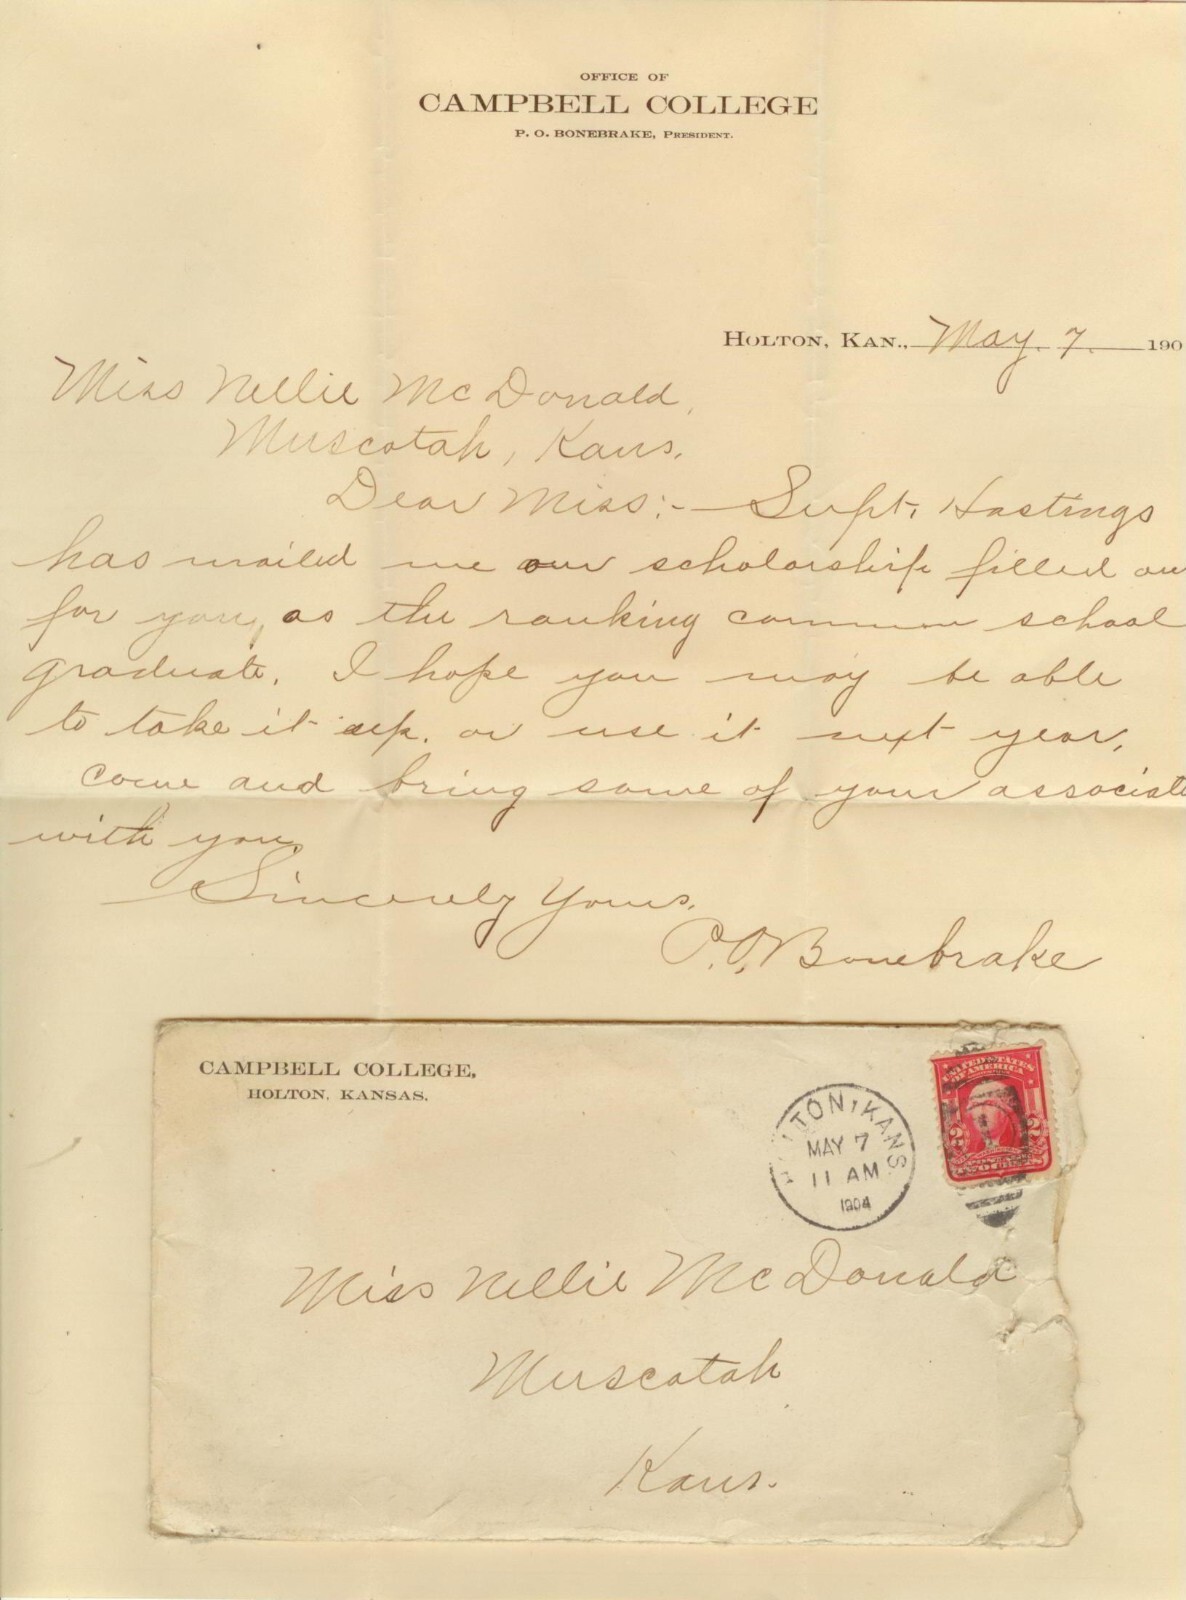 OFFICE OF
CAMPBELL COLLEGE
P. O. BONEBRAKE, PRESIDENT.
HOLTON, KAN., May. 7. 190
Miss Nellie McDonald,
Muscotah, Kans.
Dear Miss:- Supt. Hastings
has mailed me our scholarship filled ou
for you, as the ranking common school
graduate. I hope you may be able
to take it up. or use it next year,
come and bring some of your associate
with you.
Sincerely Yours.
P. O. Bonebrake
CAMPBELL COLLEGE,
HOLTON, KANSAS.
HOLTON, KANS.
MAY 7
11 AM
1904
UNITED STATES
OF AMERICA
2 2
Miss Nellie McDonald
Muscotah
Kans.